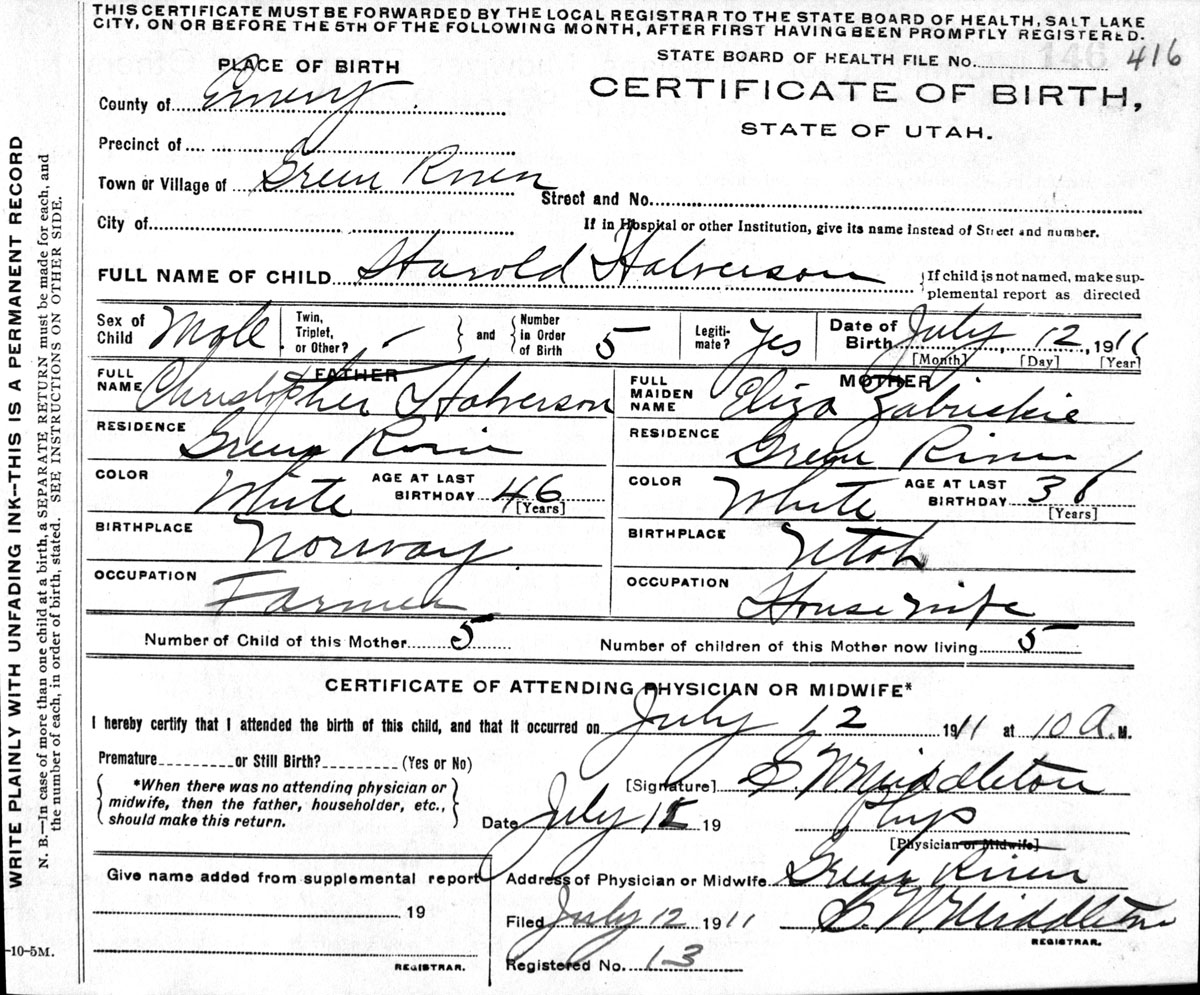 THIS CERTIFICATE MUST BE FORWARDED BY THE LOCAL REGISTRAR TO THE STATE BOARD OF HEALTH, SALT LAKE
CITY, ON OR BEFORE THE 5TH OF THE FOLLOWING MONTH, AFTER FIRST HAVING BEEN PROMPTLY REGISTERED.
STATE BOARD OF HEALTH FILE No. 416
PLACE OF BIRTH
CERTIFICATE OF BIRTH,
STATE OF UTAH.
County of Emery
Precinct of
Town or Village of Green River
Street and No.
City of
If in Hospital or other Institution, give its name instead of Street and number.
FULL NAME OF CHILD Harold Halverson
If child is not named, make sup-
plemental report as directed
Sex of Child Male
Twin, Triplet, or Other? -
and
Number in Order of Birth 5
Legiti-mate? Yes
Date of Birth July 12, 1911
[Month] [Day] [Year]
FATHER
FULL NAME Christopher Halverson
RESIDENCE Green River
COLOR White
AGE AT LAST BIRTHDAY 46
[Years]
BIRTHPLACE Norway
OCCUPATION Farmer
MOTHER
FULL MAIDEN NAME Eliza Zabriskie
RESIDENCE Green River
COLOR White
AGE AT LAST BIRTHDAY 36
[Years]
BIRTHPLACE Utah
OCCUPATION Housewife
Number of Child of this Mother 5
Number of children of this Mother now living 5
CERTIFICATE OF ATTENDING PHYSICIAN OR MIDWIFE*
I hereby certify that I attended the birth of this child, and that it occurred on July 12 1911 at 10 A. M.
Premature or Still Birth? (Yes or No)
*When there was no attending physician or
midwife, then the father, householder, etc.,
should make this return.
[Signature] S. W Middleton
Date July 19
Phys
[Physician or Midwife]
Give name added from supplemental report
19
REGISTRAR.
Address of Physician or Midwife Green River
Filed July 12 1911
S. W Middleton
REGISTRAR.
Registered No. 13
-10-5M.
WRITE PLAINLY WITH UNFADING INK--THIS IS A PERMANENT RECORD
N. B.—In case of more than one child at a birth, a SEPARATE RETURN must be made for each, and
the number of each, in order of birth, stated. SEE INSTRUCTIONS ON OTHER SIDE.